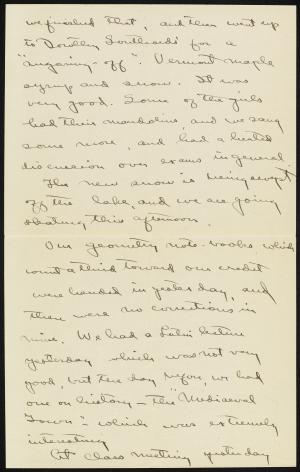 we finished that, and then went up
to Dorothy Southards' for a
"sugaring-off". Vermont maple
syrup and snow. It was
very good. Some of the girls
had their mandolins and we sang
some more, and had a heated
discussion over exams in general.
The new snow is being swept
off the lake, and we are going
skating this afternoon.
Our geometry note-books which
count a third toward our credit
were handed in yesterday, and
there were no corrections in
mine. We had a Latin lecture
yesterday which was not very
good, but the day before, we had
one on history - the "Mediaeval
Town" - which was extremely
interesting.
At class meeting yesterday